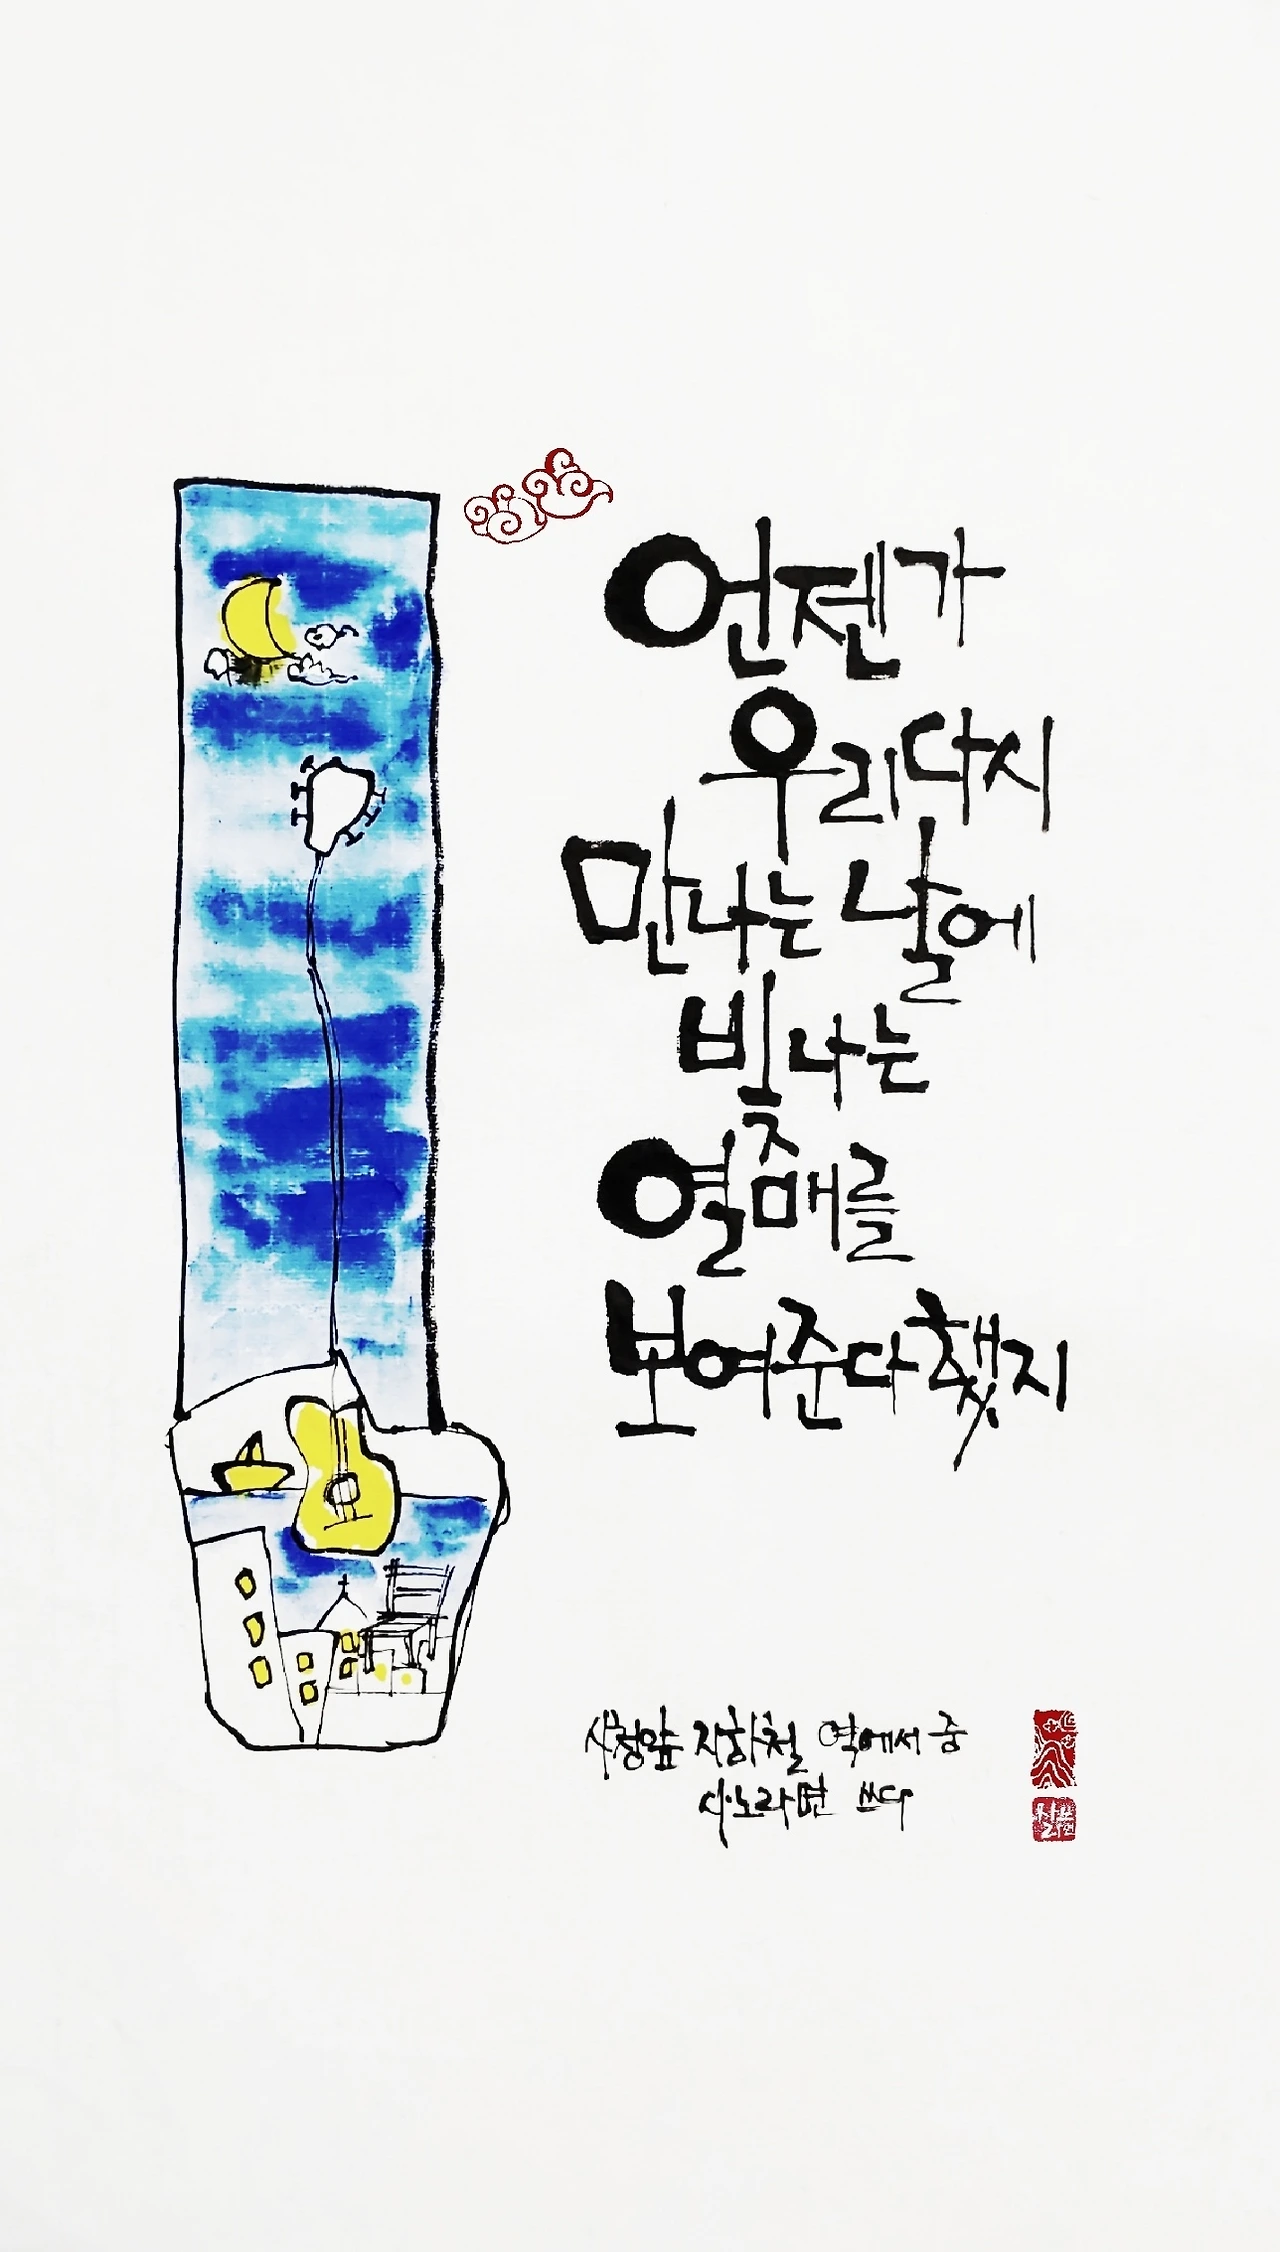 언젠가
우리 다시
만나는 날에
빛나는
열매를
보여준다 했지
시청앞 지하철 역에서 중
사노라면 쓰다